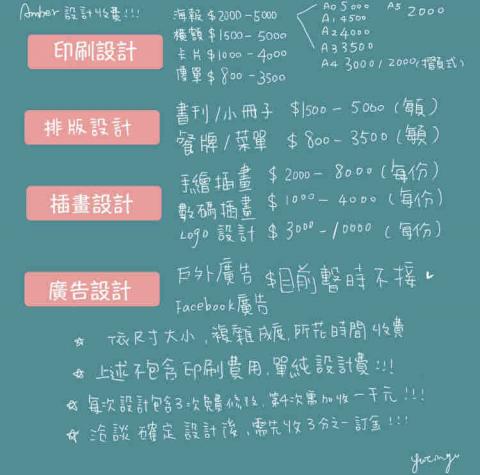 Amber 設計收費!!!
印刷設計
海報 $2000-5000
橫額 $1500-5000
卡片 $1000-4000
傳單 $800-3500
A0 5000
A1 4500
A2 4000
A3 3500
A4 3000/2000(摺頁式)
A5 2000
排版設計
書刊/小冊子 $1500-5000(每頁)
餐牌/菜單 $800-3500(每頁)
插畫設計
手繪插畫 $2000-8000(每份)
數碼插畫 $1000-4000(每份)
Logo 設計 $3000-10000(每份)
廣告設計
戶外廣告 $目前暫時不接
Facebook廣告
☆ 依尺寸大小,複雜成度,所花時間收費
☆ 上述不包含印刷費用,單純設計費!!!
☆ 每次設計包含3次免費修改,第4次需加收一千元!!!
☆ 洽談確定設計後,需先收3分之一訂金!!!